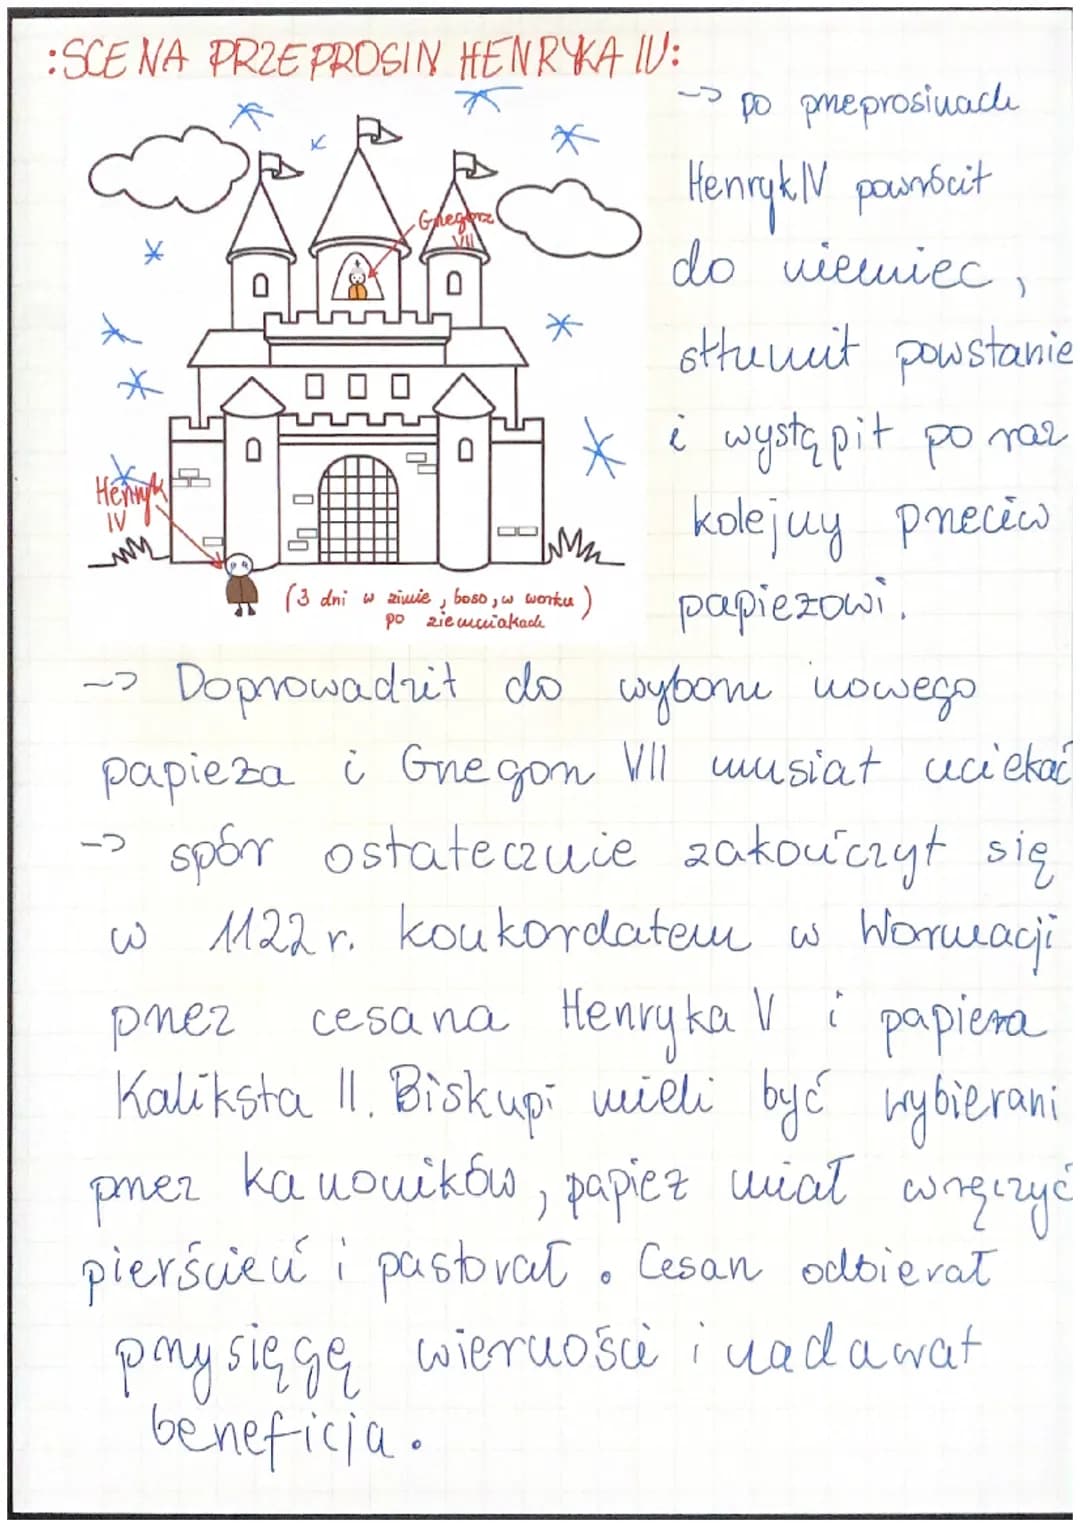 :SCENA PRZEPROSIN HENRYKA IV:
-> po przeprosinach
Henryk IV powrócił
do niemiec,
stłumił powstanie
i wystąpił po raz
kolejny przeciw
papieżowi.
Gregorz
VII
Henryk
IV
(3 dni w zimie, boso, w worku)
po ziemniakach
-> Doprowadził do wyboru nowego
papieża i Grzegorz VII musiał uciekać
-> spór ostatecznie zakończył się
w 1122 r. konkordatem w Wormacji
przez cesarza Henryka V i papieża
Kaliksta II. Biskupi mieli być wybierani
przez kanoników, papież miał wręczyć
pierścień i pastorał. Cesarz odbierał
przysięgę wierności i nadawał
beneficja.